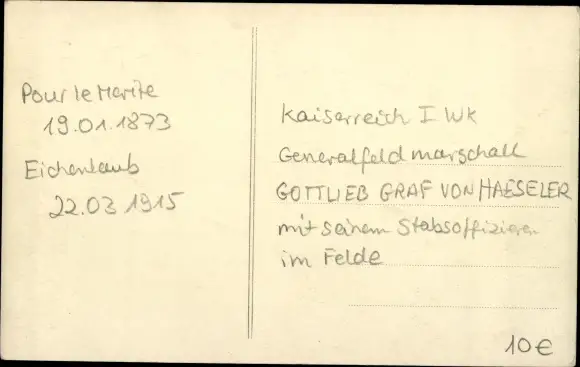 Pour le Merite
19.01.1873
Eichenlaub
22.03 1915
Kaiserreich I WK
Generalfeldmarschall
GOTTLIEB GRAF VON HAESELER
mit seinem Stabsoffizieren
im Felde
10€